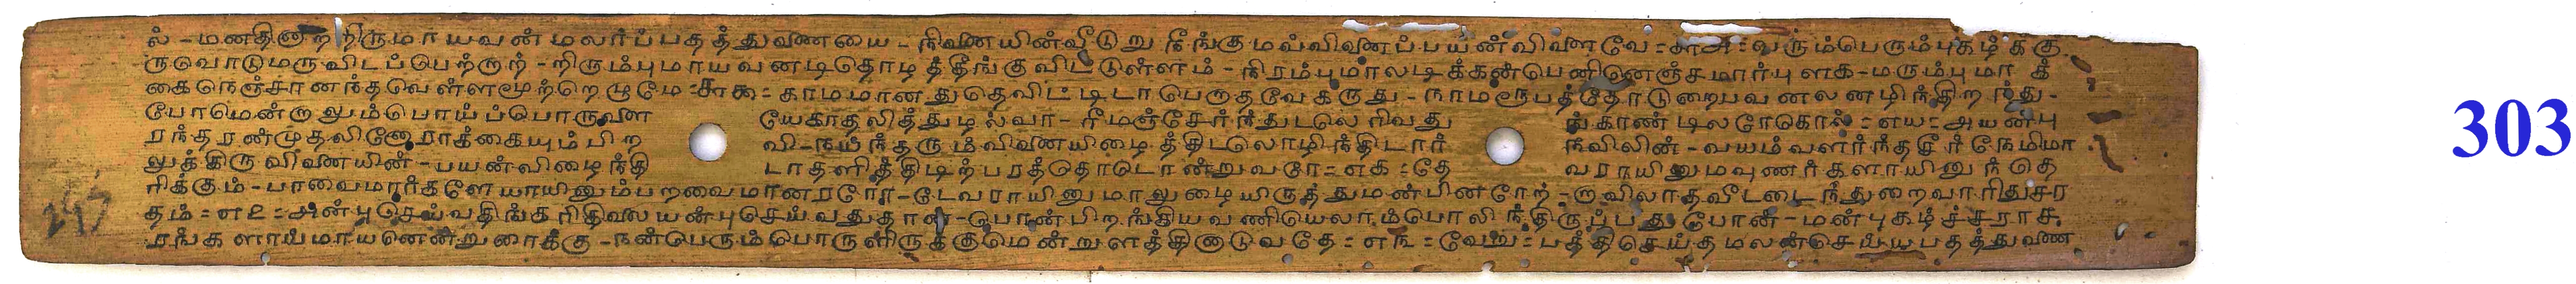 ல் - மனதினாற்றிருமாயவன்மலர்ப்பதத்துவணையை - நிவணயின்வீடுறு நீங்குமவ்விவணப்பயன்விவளவே = ௬௮ = வரும்பெரும்புகழ்க்கு
ருவொடுமருவிடப்பெற்றாற் - றிரும்புமாயவனடிதொழத்தீங்குவிட்டுள்ளம் - நிரம்புமாலடிக்கன்பெனினெஞ்சமார்புளக - மரும்புமாக்
கைநெஞ்சானந்தவெள்ளமூற்றெழுமே = ௬௯ = காமமானதுதெவிட்டிடாபெருதவேகருது - நாமரூபத்தோடுறைபவனலனழிந்திறந்து -
போமென்றாலும்பொய்ப்பொருவள யேகாதலித்துழல்வா - ரீமஞ்சேர்ந்துடலெரிவது ங்காண்டிலரோகொல் = ௭௰ = அயன்பு
ரந்தரன்முதலினோராக்கையும்பிற வி - நயந்தரும்விவணயிழைத்திடலொழிந்திடார் நவிலின் - வயம்வளர்ந்தசீர்நேமிமா
லுக்கிருவிவணயின் - பயன்விழைந்தி டாதளித்திடிற்பரத்தொடொன்றுவரே = ௭௧ = தே வராயினுமவுணர்களாயினுந்தெ
ரிக்கும் - பாவைமார்களேயாயினும்பறவைமானரரோ - டேவராயினுமாலுழையிருத்துமன்பினரேற் - றாவிலாதவீடடைந்துறைவாரிதுசர
தம் = ௭௨ = அன்புசெய்வதிங்கரிதிவலயன்புசெய்வதுதான் - பொன்பிறங்கியவணியெலாம்பொலிந்திருப்பதுபோன் - மன்புகழ்ச்சராச
ரங்களாய்மாயனென்றுரைக்கு - நன்பெரும்பொருளிருக்குமென்றுளத்தினாடுவதே = ௭௩ = வேறு = பத்திசெய்தமலன்செய்யபதத்துவண
297
303